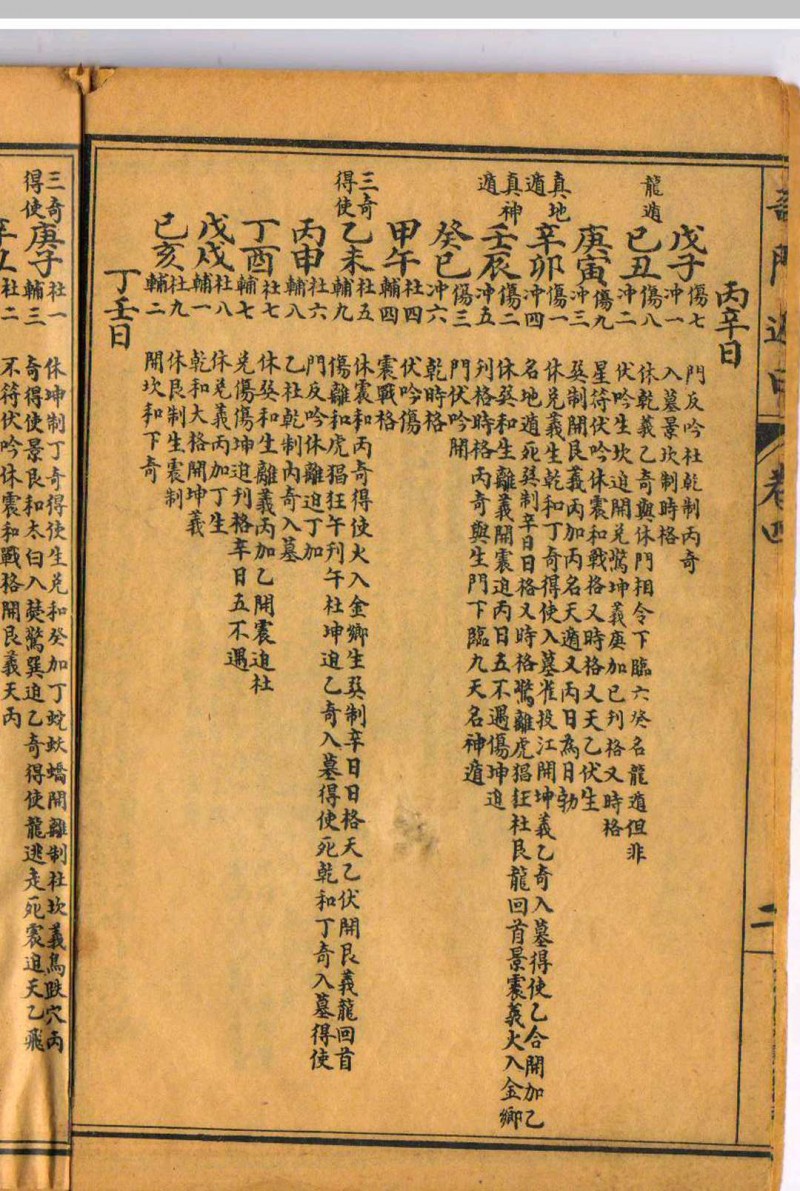 奇門遁甲 卷四 二
丙辛日
戊子 傷七 沖一 門反吟社乾制丙奇
入墓景坎制時格
龍遁 己丑 傷八 沖二 休乾義乙奇與休門相合下臨六癸名龍遁但非
伏吟生坎迫開兌驚坤義庚加已列格又時格
庚寅 傷九 沖三 星符伏吟休震和戰格又時格又天乙伏生
癸制開艮義丙加丙名天遁又丙日為日勃
真地遁 辛卯 傷一 沖四 休兌義生乾和丁奇得使入墓雀投江開坤義乙奇入墓得使乙合開加乙
名地遁死癸制辛日日格又時格驚離虎猖狂杜艮龍回首景震義火入金鄉
真神遁 壬辰 傷二 沖五 休癸和生離義開震迫丙日五不遇傷坤迫
列格時格丙奇與生門下臨九天名神遁
癸巳 傷三 沖六 門伏吟開
乾時格
甲午 社四 輔四 伏吟傷
震戰格
三奇得使 乙未 社五 輔九 休震和丙奇得使火入金鄉生癸制辛日日格天乙伏開艮義龍回首
傷離和虎猖狂午刊午杜坤迫乙奇入墓得使死乾和丁奇入墓得使
丙申 社六 輔八 門反吟休離迫丁加
乙社乾制丙奇入墓
丁酉 社七 輔七 休癸和生離義丙加乙開震迫社
兌傷傷坤迫刊格辛日五不遇
戊戌 社八 輔一 休兌義丙加丁生
乾和大格開坤義
己亥 社九 輔二 休艮制生震制
開坎和下奇
丁壬日
三奇得使 庚子 社一 輔三 休坤制丁奇得使生兌和癸加丁蛇妖矯開離制社坎義鳥跌穴丙
奇得使景艮和太白入熒驚巽迫乙奇得使龍逃走死震迫天乙飛
社二 不符伏吟休震和戰格開艮義天丙